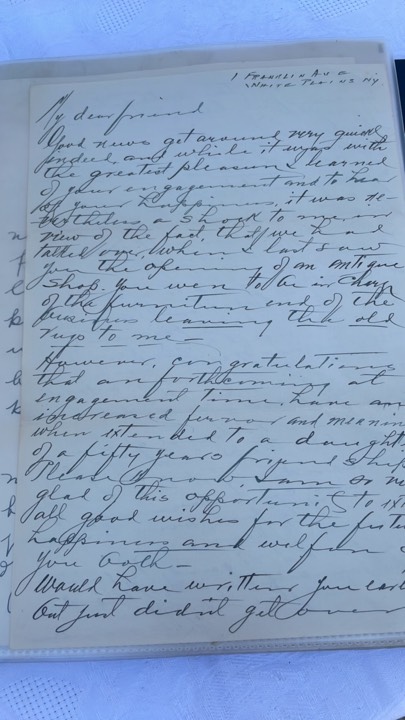 1 Franklin Ave
White Plains NY
My dear friend
Good news get around very quickly
indeed, and while it was with
the greatest pleasure I learned
of your engagement and to hear
of your happiness, it was ne-
vertheless a shock to me, in
view of the fact, that we had
talked over, when I last saw
you the opening of an antique
shop. you were to be in charge
of the furniture end of the
business leaving the old
rugs to me —
However, congratulations
that are forthcoming at
engagement time, have an
increased fervor and meaning
when extended to a daughter
of a fifty years friendship
Please know, I am so very
glad of this opportunity to
all good wishes for the future
happiness and welfare
you both —
Would have written you
but just didn't get over